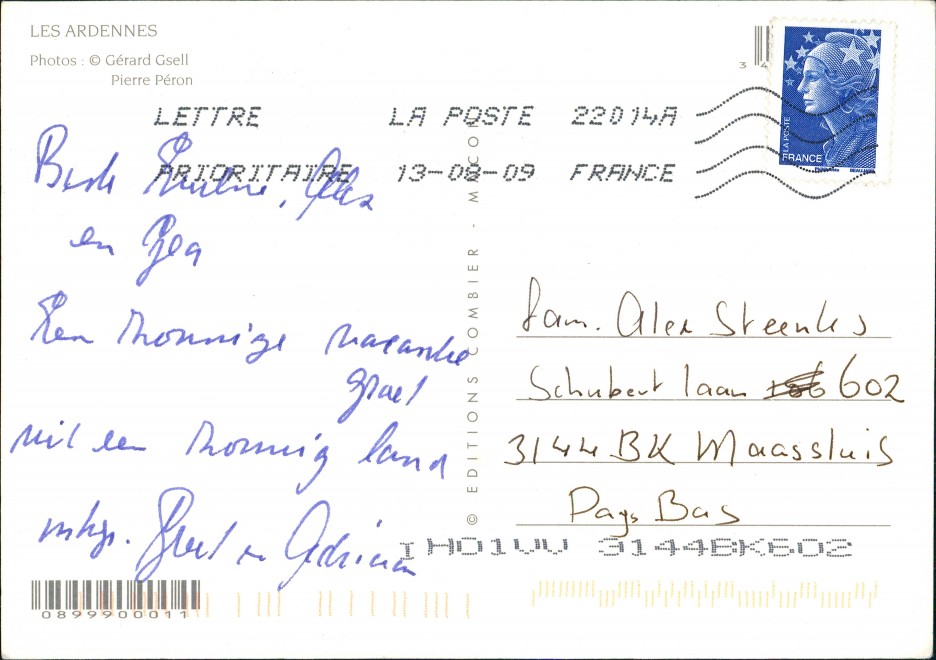 LES ARDENNES
Photos : © Gérard Gsell
Pierre Péron
LETTRE LA POSTE 22014A
PRIORITAIRE 13-08-09 FRANCE
LA POSTE
FRANCE
© EDITIONS COMBIER - MACON
Beste Pauline, Alex
en Bea
Een zonnige vakantie
groet
uit een zonnig land
mvg. Greet en Adriaan
fam. Alex Steenks
Schubert laan 602
3144 BK Maassluis
Pays Bas
3144BK602
0899900011